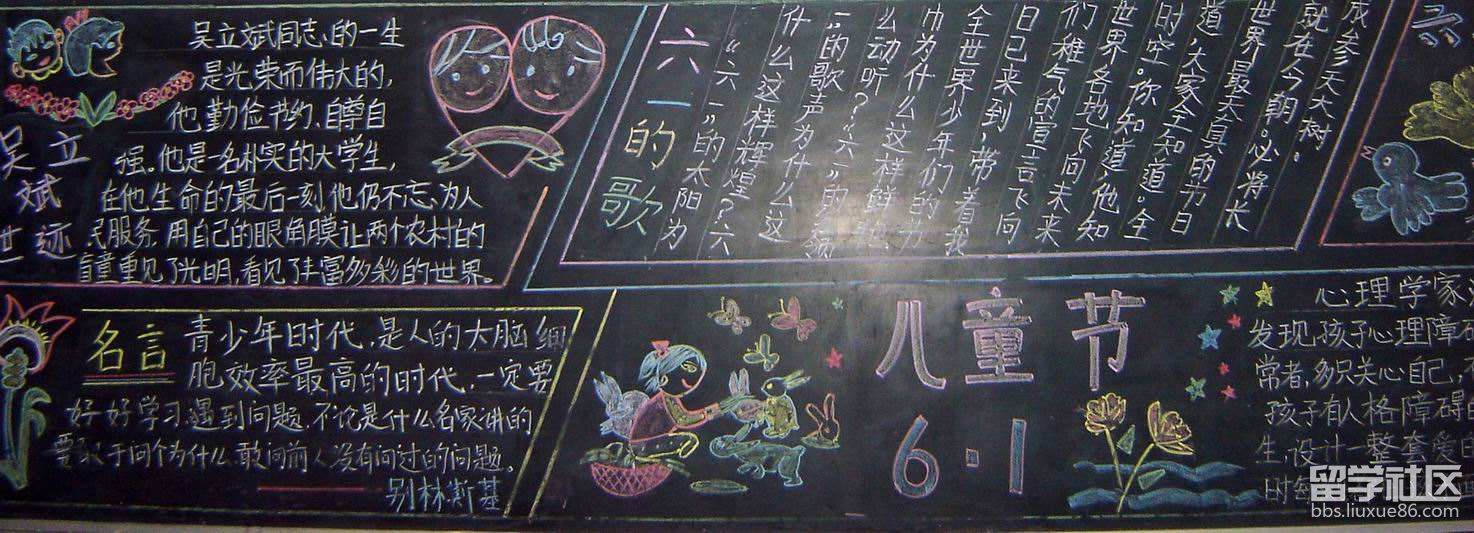 吴立斌同志的一生
是光荣而伟大的,
他勤俭节约、自尊自
强。他是一名朴实的大学生,
在他生命的最后一刻他仍不忘为人
民服务,用自己的眼角膜让两个农村的
盲童重见了光明,看见了丰富多彩的世界。
吴立
斌
世迹
名言
青少年时代,是人的大脑细
胞效率最高的时代,一定要
好好学习遇到问题,不论是什么名家讲的
要敢于问个为什么敢问前人没有问过的问题。
别林斯基
六一的歌
“六一”的太阳为
什么这样辉煌?“六
一”的歌声为什么这
么动听?“六一”的颜
巾为什么这样鲜
全世界少年们的
日已来到,带着我
们稚气的宣言飞向
世界各地飞向未来
时空。你知道,他知
道,大家全知道。全
世界最天真的节日
就在今朝。必将长
成参天大树。
儿童节
6·1
心理学家
发现,孩子心理障碍
常者,多只关心自己,
孩子有人格障碍的
生,设计一整套爱的
时每
留学社区
bbs.liuxue86.com